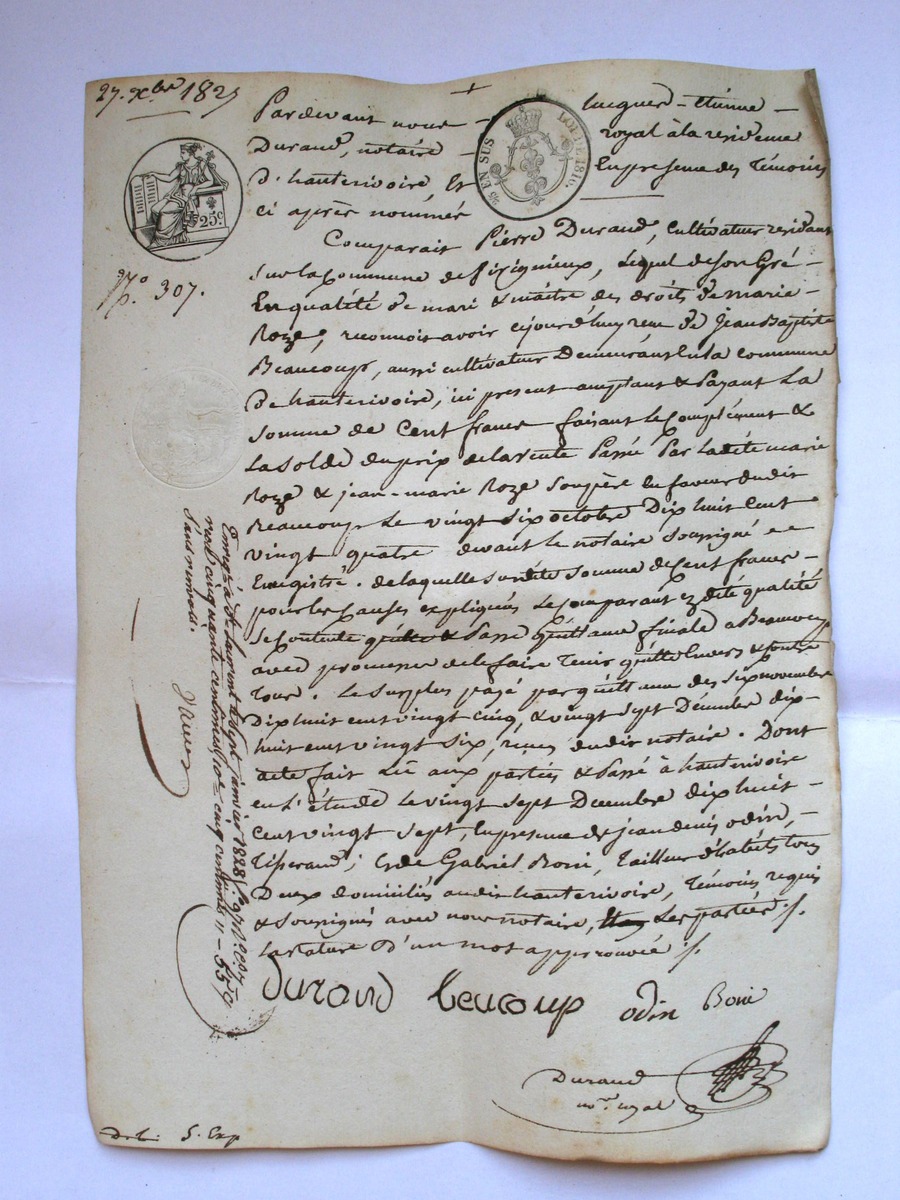 27. Xbre 1827
Pardevant nous jacques-étiénne
Durand, notaire royal à la residence
d'hauterivoire et en presence des témoins
ci après nommés
EN SUS
LOI DE 1816
25c
No. 307.
Comparait Pierre Durand, Cultivateur residant
sur la Commune de , Lequel de son Gré
En qualité de mari & maître des droits de marie
Roze, reconnoit avoir cejourd'huy reçu de Jean Baptiste
Beaucoup, aussi cultivateur Demeurant en la commune
de hauterivoire, ici present acceptant & Payant La
somme de Cent francs faisant le Complément &
La solde du prix de la vente Passée Par ladite marie
Roze & jean-marie Roze son père en faveur dudit
Beaucoup Le vingt six octobre Dix huit Cent
vingt quatre devant le notaire soussigné
Enregistré. de laquelle susdite somme de Cent francs
pour les Causes expliquées Le Comparant ez dite qualité
se Contente quitte & Passe quittance finale a Beaucoup
avec promesse de le faire tenir quitte Envers & Contre
tous. Le surplus payé par quittances des six novembre
Dix huit cent vingt cinq, & vingt sept Décembre dix
huit cent vingt six, reçues dudit notaire. Dont
acte fait Lû aux parties & Passé à hauterivoire
en L'étude Le vingt sept Décembre dix huit
Cent vingt sept, En presence de jean denis odin,
tisserand, & de Gabriel Boni, tailleur d'habits tous
Deux domiciliés audit hauterivoire, témoins requis
& soussignés avec nous notaire, & Les parties ./.
La rature d'un mot approuvée ./.
durand beucoup odin Boni
Durand
nre royal
Enregé à St. Laurent le sept janvier 1828
reçu cinquante centimes
cinq centimes
Sans renvoi.
5. Exp